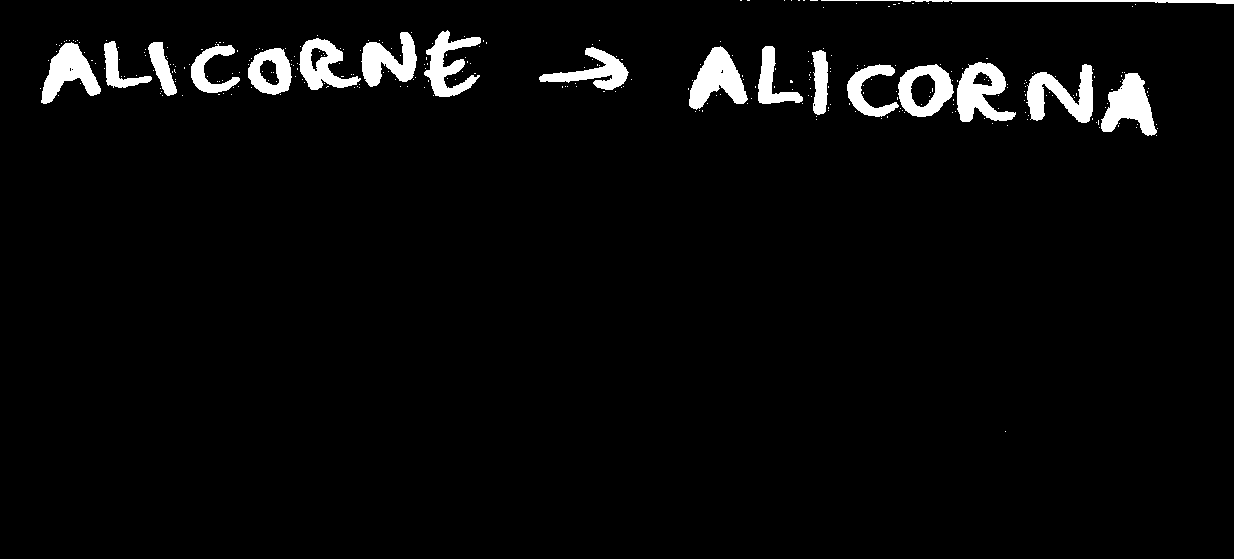 ALICORNE → ALICORNA